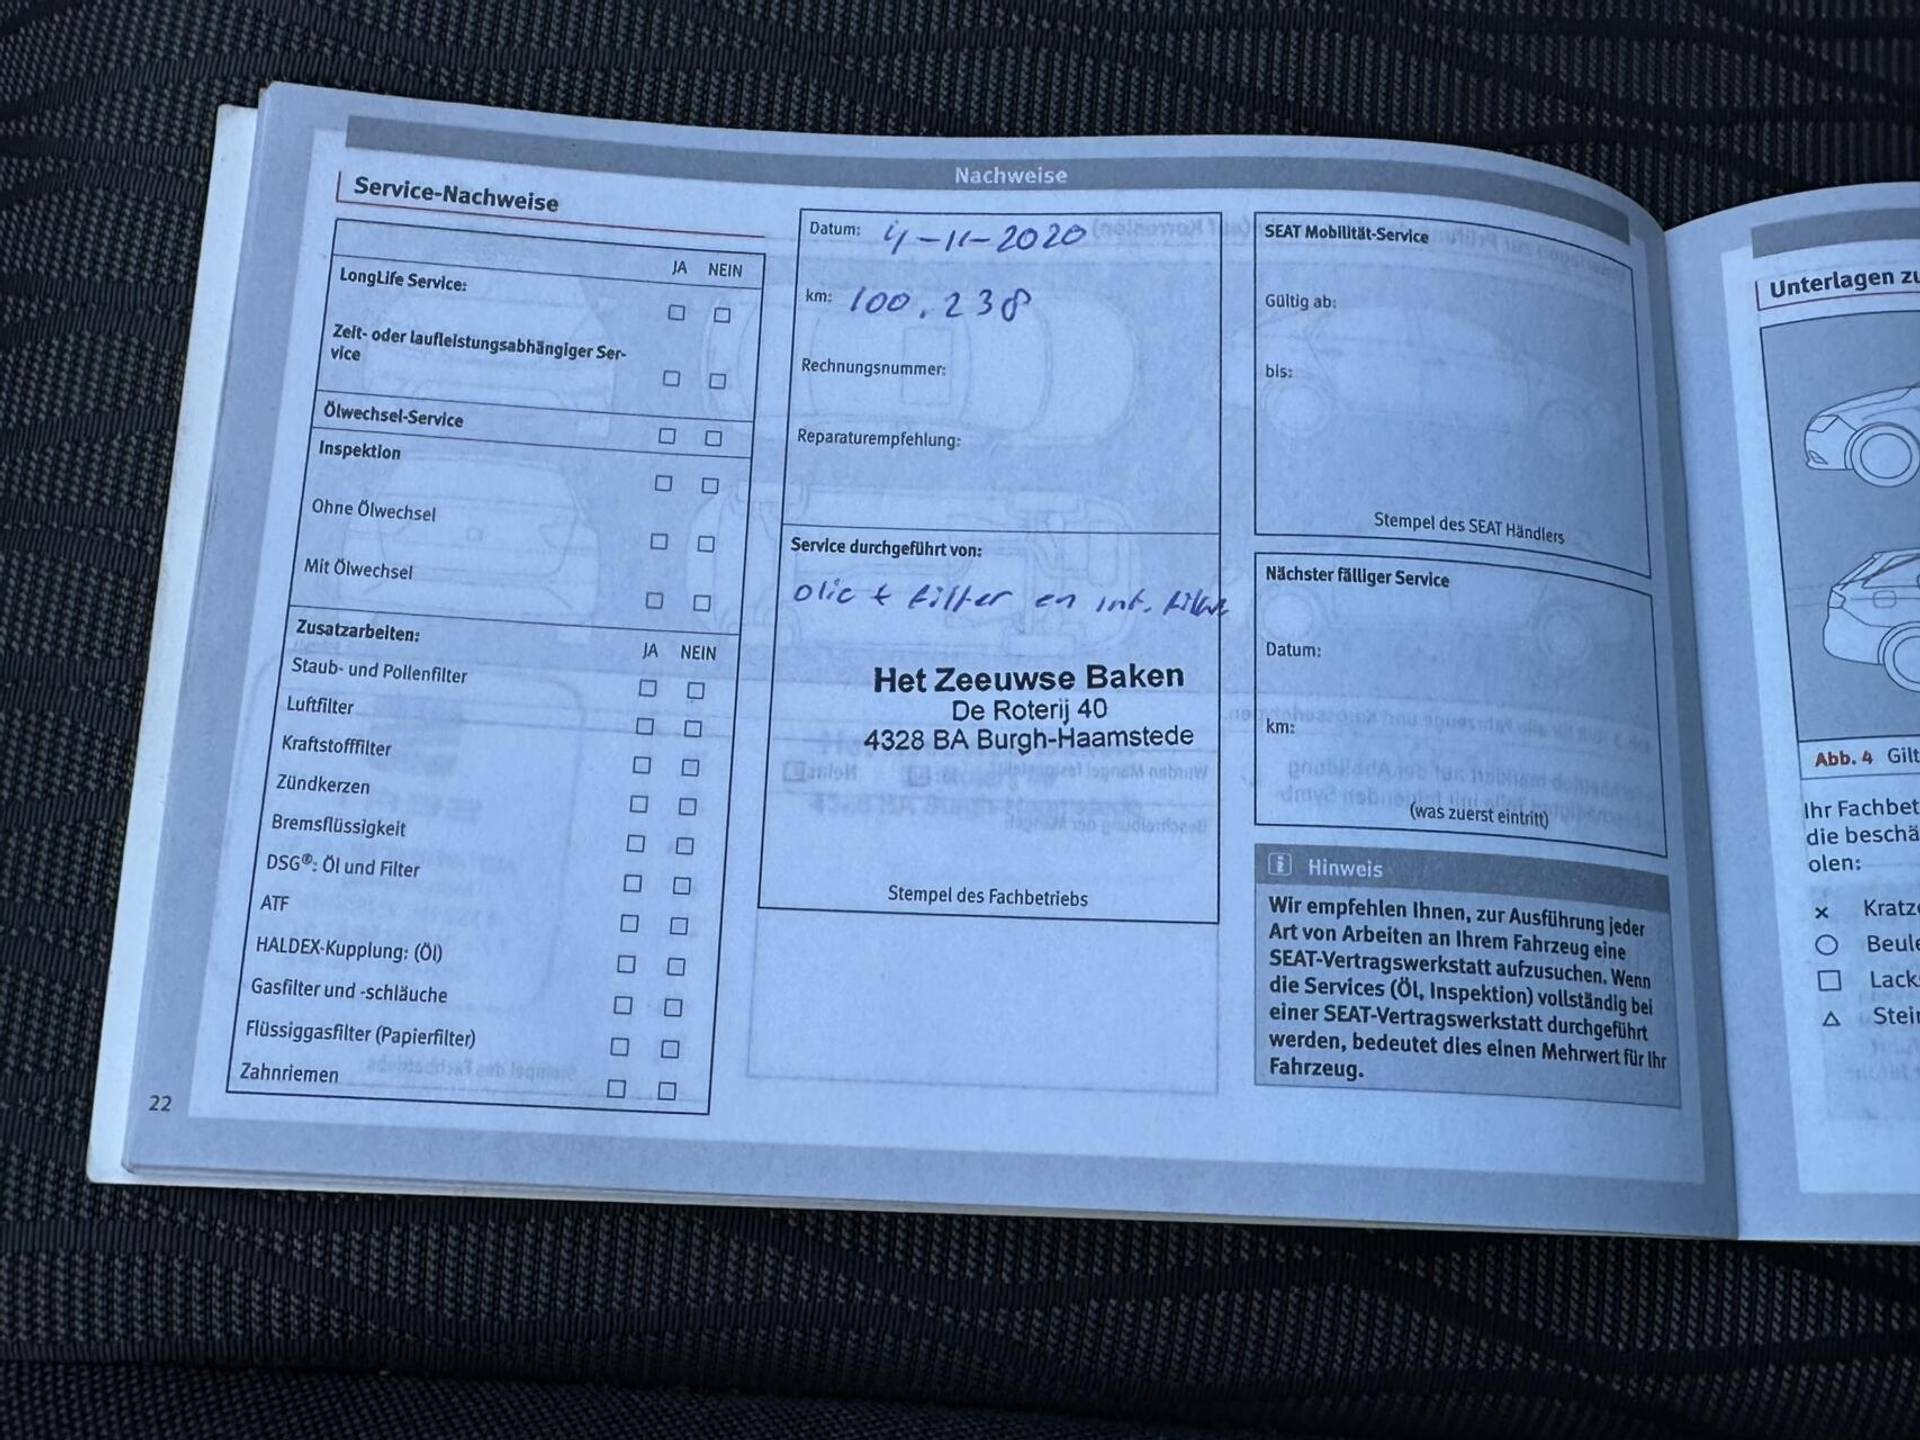 Nachweise
Service-Nachweise
JA NEIN
LongLife Service:
Zeit- oder laufleistungsabhängiger Ser-
vice
Ölwechsel-Service
Inspektion
Ohne Ölwechsel
Mit Ölwechsel
Zusatzarbeiten:
JA NEIN
Staub- und Pollenfilter
Luftfilter
Kraftstofffilter
Zündkerzen
Bremsflüssigkeit
DSG®: Öl und Filter
ATF
HALDEX-Kupplung: (Öl)
Gasfilter und -schläuche
Flüssiggasfilter (Papierfilter)
Zahnriemen
22
Datum: 4-11-2020
km: 100.238
Rechnungsnummer:
Reparaturempfehlung:
Service durchgeführt von:
olie + filter en int. filter
Het Zeeuwse Baken
De Roterij 40
4328 BA Burgh-Haamstede
Stempel des Fachbetriebs
SEAT Mobilität-Service
Gültig ab:
bis:
Stempel des SEAT Händlers
Nächster fälliger Service
Datum:
km:
(was zuerst eintritt)
Hinweis
Wir empfehlen Ihnen, zur Ausführung jeder
Art von Arbeiten an Ihrem Fahrzeug eine
SEAT-Vertragswerkstatt aufzusuchen. Wenn
die Services (Öl, Inspektion) vollständig bei
einer SEAT-Vertragswerkstatt durchgeführt
werden, bedeutet dies einen Mehrwert für Ihr
Fahrzeug.
Unterlagen zu
Abb. 4 Gilt
Ihr Fachbet
die beschä
olen:
× Kratze
Beule
Lack
Stein